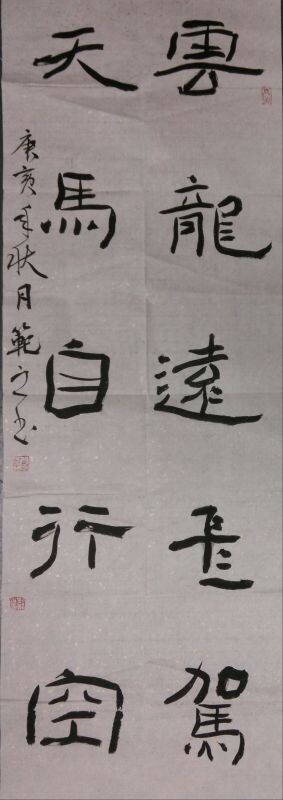 雲龍遠飛駕
天馬自行空
庚寅年秋月範之書